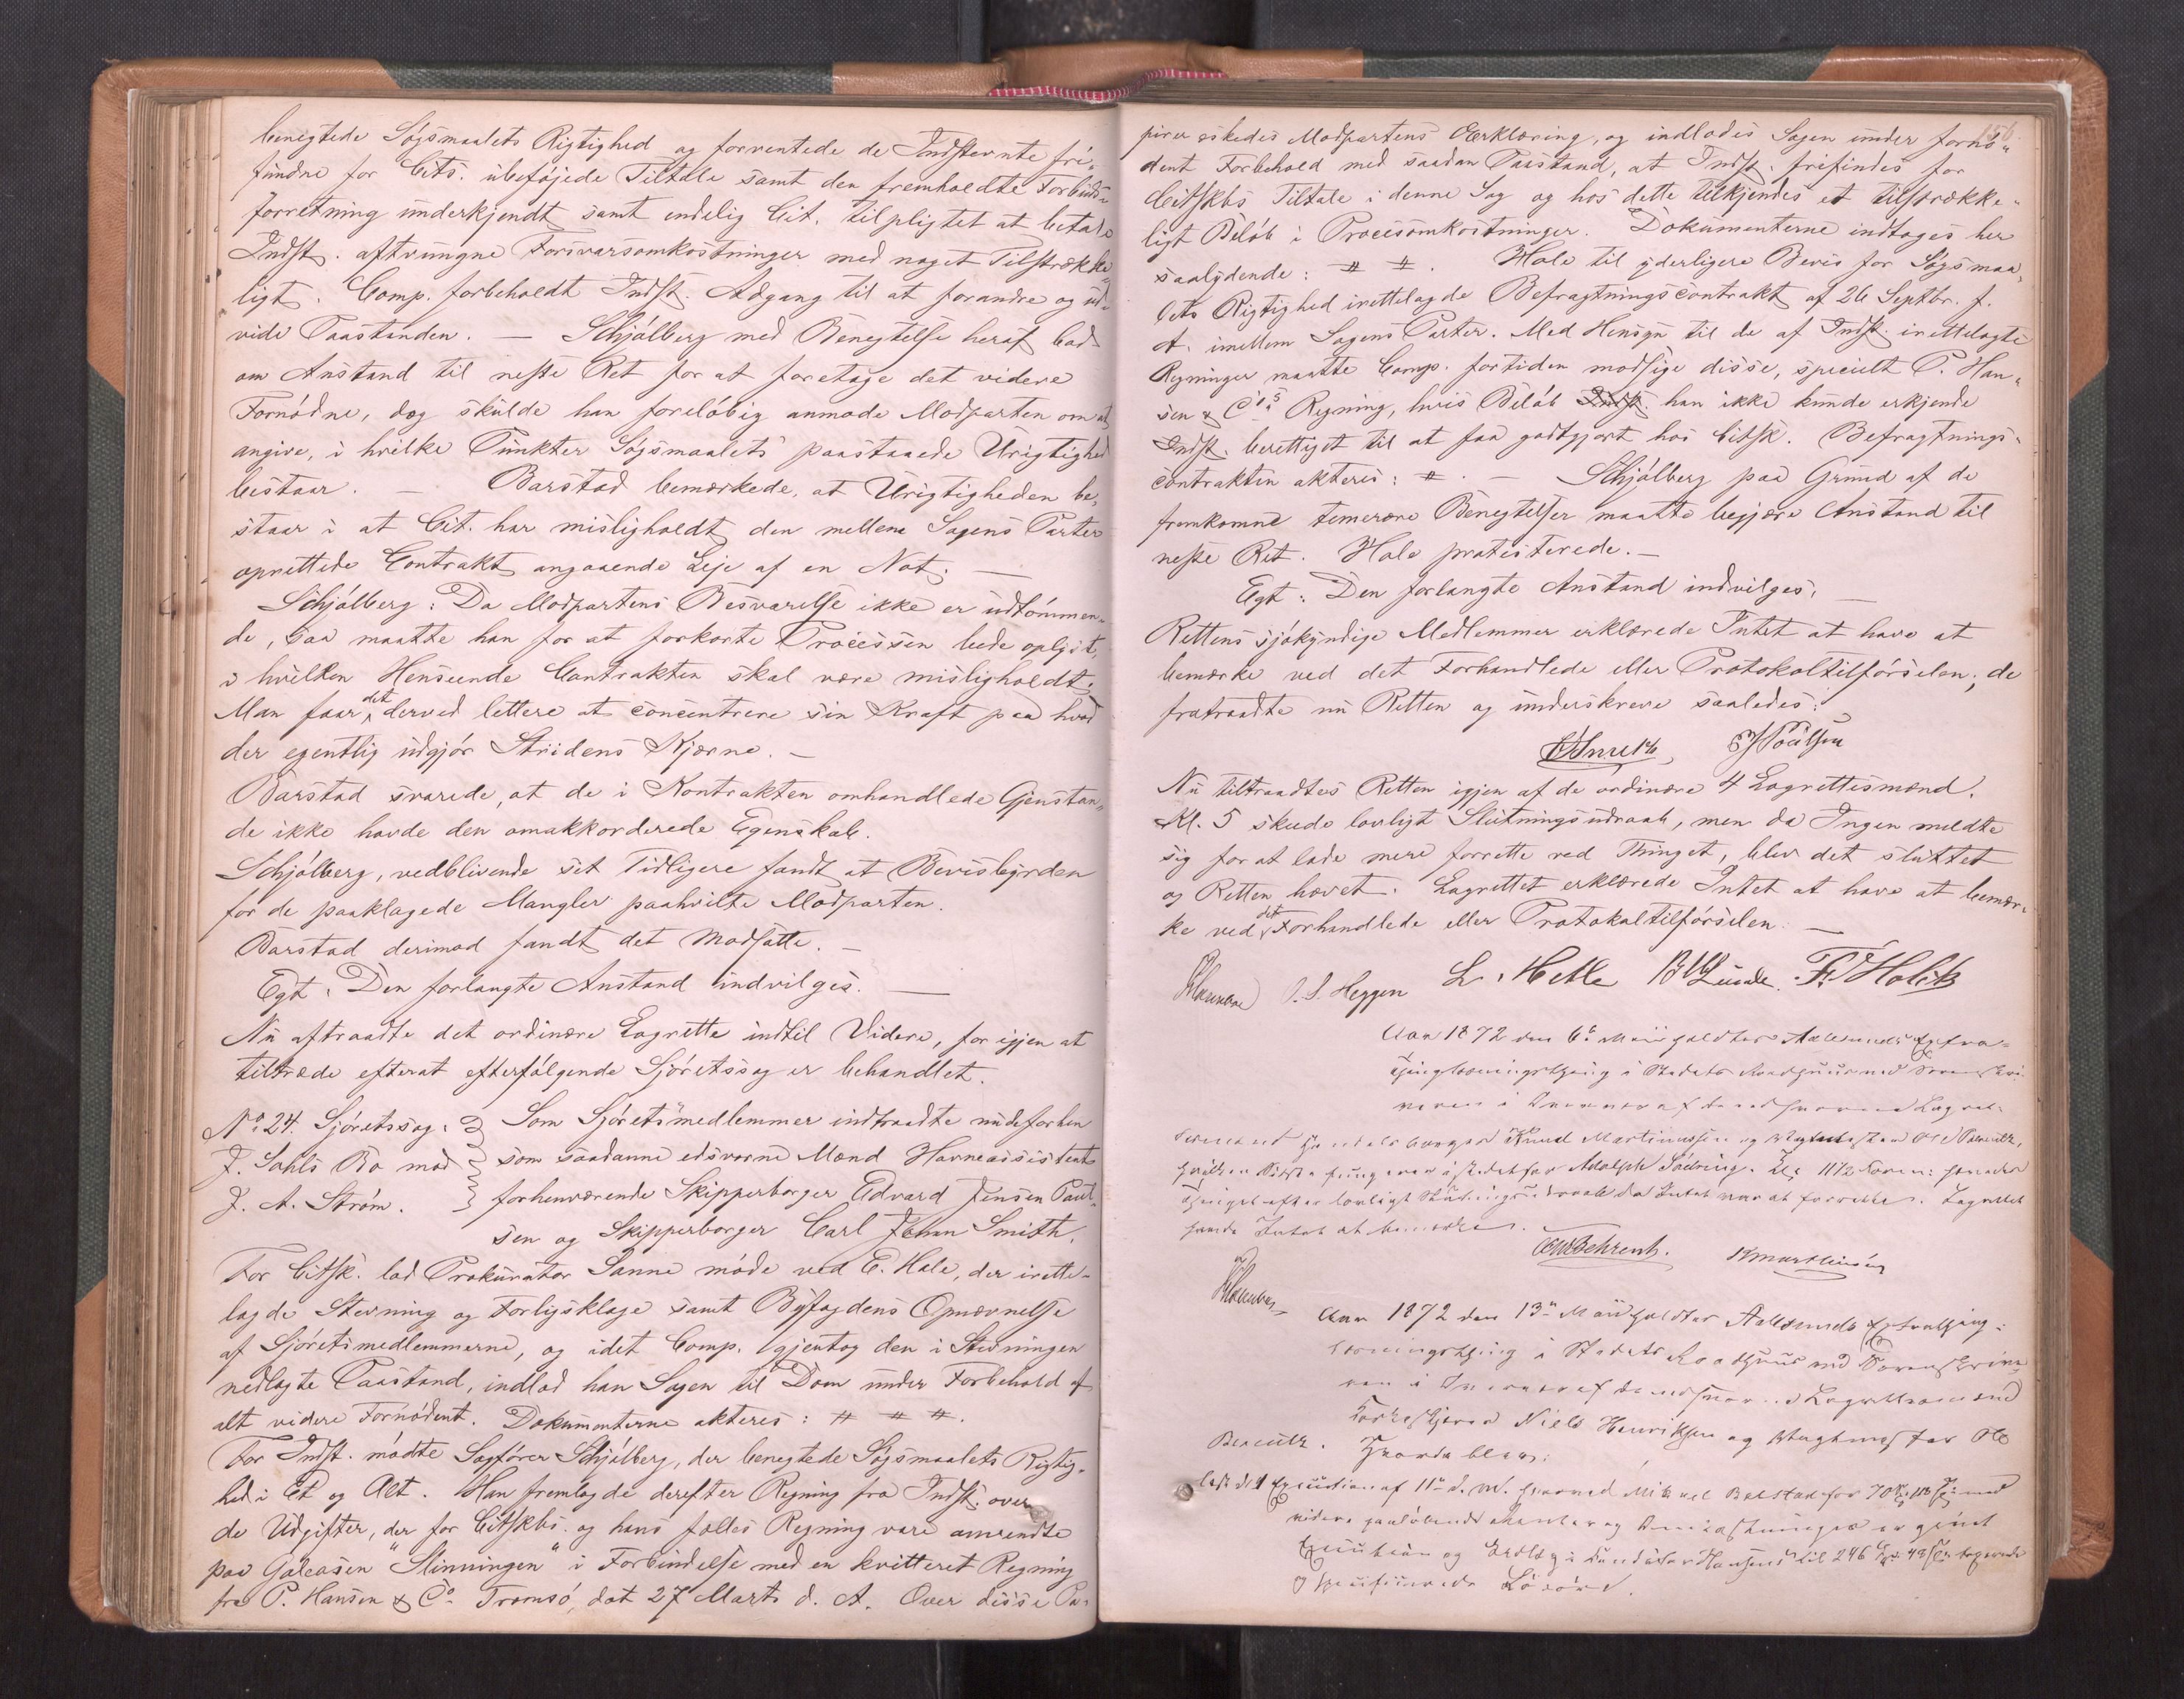 benegtede Søgsmaalets Rigtighed og forventede de Indstevnte fri-
fundne for Cits. ubeføjede Tiltale samt den fremholdte Forbuds-
forretning underkjendt samt endelig Cit. tilpligtet at betale
Indst. aftvungne Forsvarsomkostninger med noget Tilstrække-
ligt. Comp. forbeholdt Indst. Adgang til at forandre og ud-
vide Paastanden. — Schjølberg med Benegtelse heraf bad
om Anstand til neste Ret for at foretage det videre
Fornødne, dog skulde han foreløbig anmode Modparten om at
angive, i hvilke Punkter Søgsmaalets paastaaede Urigtighed
bestaar. — Barstad bemærkede, at Urigtigheden be-
staar i at Cit. har misligholdt den mellem Sagens Parter
oprettede Contrakt angaaende Leje af en Not. —
Schjølberg: Da Modpartens Besvarelse ikke er udtømmen-
de, saa maatte han for at forkorte Processen bede oplyst,
i hvilken Henseende Contrakten skal være misligholdt.
Man faar det derved lettere at concentrere sin Kraft paa hvad
der egentlig udgjør Stridens Kjærne. —
Barstad svarede, at de i Kontrakten omhandlede Gjenstan-
de ikke havde den omakkorderede Egenskab.
Schjølberg, vedblivende sit Tidligere fandt at Bevisbyrden
for de paaklagede Mangler paahvilte Modparten.
Barstad derimod fandt det Modsatte. —
Egt: Den forlangte Anstand indvilges. —
Nu aftraadte det ordinære Lagrette indtil Videre, for igjen at
tiltræde efterat efterfølgende Sjøretssag er behandlet.
No 24. Sjøretssag: Som Sjøretsmedlemmer indtraadte nudeforhen
J. Sahls Bo mod som saadanne edsvorne Mænd Havneassistent
J. A. Strøm. forhenværende Skipperborger Edvard Jensen Poul-
sen og Skipperborger Carl Johan Smith.
For Citsk. lod Prokurator Sanne møde ved E. Hale, der irette-
lagde Stevning og Forligsklage samt Byfogdens Opnævnelse
af Sjøretsmedlemmerne, og idet Comp. gjentog den i Stevningen
nedlagte Paastand, indlod han Sagen til Dom under Forbehold af
alt videre Fornødent. Dokumenterne akteres: # # #.
For Indst. mødte Sagfører Schjølberg, der benegtede Søgsmaalets Rigtig-
hed i Et og Alt. Han fremlagde derefter Regning fra Indst. over
de Udgifter, der for Citskbs. og hans fælles Regning vare anvendte
paa Galeasen "Slinningen" i Forbindelse med en kvitteret Regning
fra P. Hansen & Co Tromsø, dat 27 Marts d. A. Over disse Pa-
156.
pirer æskedes Modpartens Erklæring, og indlodes Sagen under fornø-
dent Forbehold med saadan Paastand, at Indst. frifindes for
Citskbs Tiltale i denne Sag og hos dette tilkjendes et tilstrække-
ligt Beløb i Procesomkostninger. Dokumenterne indtages her
saalydende: # #. Hale til yderligere Bevis for Søgsmaa-
lets Rigtighed irettelagde Befragtningscontrakt af 26 Septbr. f.
A. imellem Sagens Parter. Med Hensyn til de af Indst. irettelagte
Regninger maatte Comp. fortiden modsige disse, specielt P. Han-
sen & Co's Regning, hvis Beløb Indst. han ikke kunde erkjende
Indst. berettiget til at faa godtgjort hos Citsk. Befragtnings-
contrakten akteres: #. — Schjølberg paa Grund af de
fremkomne temerære Benegtelser maatte begjære Anstand til
neste Ret. Hale protesterede. —
Egt: Den forlangte Anstand indvilges. —
Rettens sjøkyndige Medlemmer erklærede Intet at have at
bemærke ved det Forhandlede eller Protokoltilførselen; de
fratraadte nu Retten og underskreve saaledes:
CJSmith EJPoulsen
Nu tiltraadtes Retten igjen af de ordinære 4 Lagrettesmænd.
Kl. 5 skede lovligt Slutningsudraab, men da Ingen meldte
sig for at lade mere forrette ved Thinget, blev det sluttet
og Retten hævet. Lagrettet erklærede Intet at have at bemær-
ke ved det Forhandlede eller Protokoltilførselen. —
O. S. Heggen L. Hetle Lunde Fr Holck
Aar 1872 den 6te Mai holdtes Aalesunds Extra-
thinglæsningsthing i Stadets Raadhuus ved Sorenskri-
veren i Overvær af de edsvorne Lagret-
temænd Handelsborger Knud Martinussen og Ole Berentz,
hvilken Sidste fungerer i stedetfor Adolph Södring. Kl. 11½ Form: hævedes
Thinget efter lovligt Slutningsudraab da Intet var at forrette. Lagrettet
havde Intet at bemærke.
OWBehrentz. KMartinusen
Aar 1872 den 13de Mai holdtes Aalesunds Extrathing-
læsningsthing i Stadets Raadhuus ved Sorenskrive-
ren i Overvær af de edsvorne Lagrettesmænd
Niels Henriksen og Vagtmester Ole
Berentz. Hvorda blev:
læst d 1 Execution af 11te d. M. hvorved Mikael Barstad for 70 Sp 118 s med
videre paaløbende Renter og Omkostninger er gjort
Execution og i Hansens til 246 Sp 49 s taxerede
specificerede Løsøre.